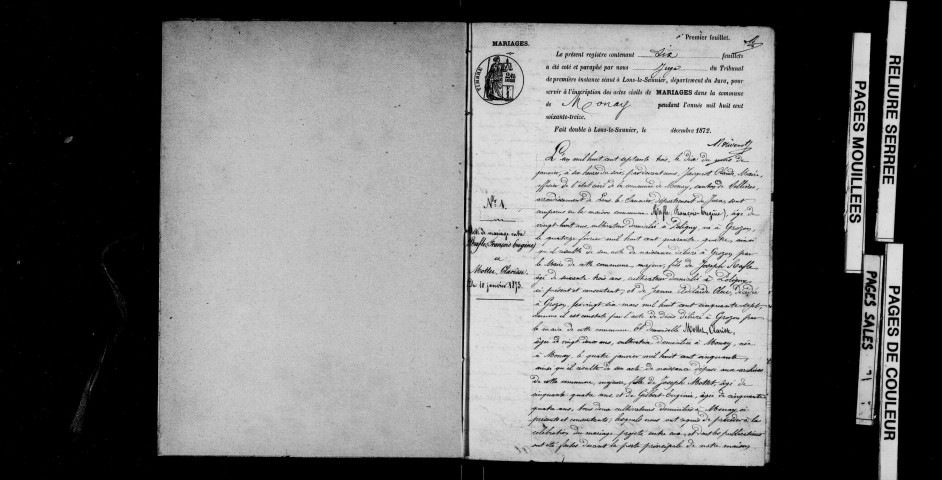 Premier feuillet.
MARIAGES.
Le présent registre contenant six feuillets
a été coté et paraphé par nous Juge du Tribunal
de première instance séant à Lons-le-Saunier, département du Jura, pour
servir à l'inscription des actes civils de MARIAGES dans la commune
de Monay pendant l'année mil huit cent
soixante-treize.
Fait double à Lons-le-Saunier, le décembre 1872.
L'an mil huit cent septante trois, le dix du mois de
janvier, à six heures du soir, pardevant nous, Jacquot Claude Marie
officier de l'état civil de la commune de Monay, canton de Sellières,
arrondissement de Lons le Saunier département du Jura, sont
comparus en la maison commune François Eugène, âgé de
vingt huit ans, cultivateur domicilié à Poligny, né à Grozon,
le quatorze février mil huit cent quarante quatre, ainsi
qu'il résulte de son acte de naissance délivré à Grozon par
le Maire de cette commune, majeur, fils de Joseph
âgé de soixante trois ans, cultivateur domicilié à Poligny
ici présent et consentant, et de Jeanne décédée
à Grozon, le vingt six mars mil huit cent cinquante sept,
comme il est constaté par l'acte de décès délivré à Grozon par
le maire de cette commune. Et demoiselle Mottet, Clarisse,
âgée de vingt deux ans, cultivatrice domiciliée à Monay, née
à Monay, le quatre janvier mil huit cent cinquante
ainsi qu'il résulte de son acte de naissance déposé aux archives
de cette commune, majeure, fille de Joseph Mottet, âgé de
cinquante quatre ans et de Gilbert Eugénie, âgée de cinquante
quatre ans, tous deux cultivateurs domiciliés à Monay, ici
présents et consentants; lesquels nous ont requis de procéder à la
célébration du mariage projeté entre eux et dont les publications
ont été faites devant la porte principale de notre maison
N° 1.
Acte de mariage entre
François Eugène
et
Mottet, Clarisse
Du 10 janvier 1873.
RELIURE SERREE
PAGES MOUILLEES
PAGES SALES
PAGES DE COULEUR